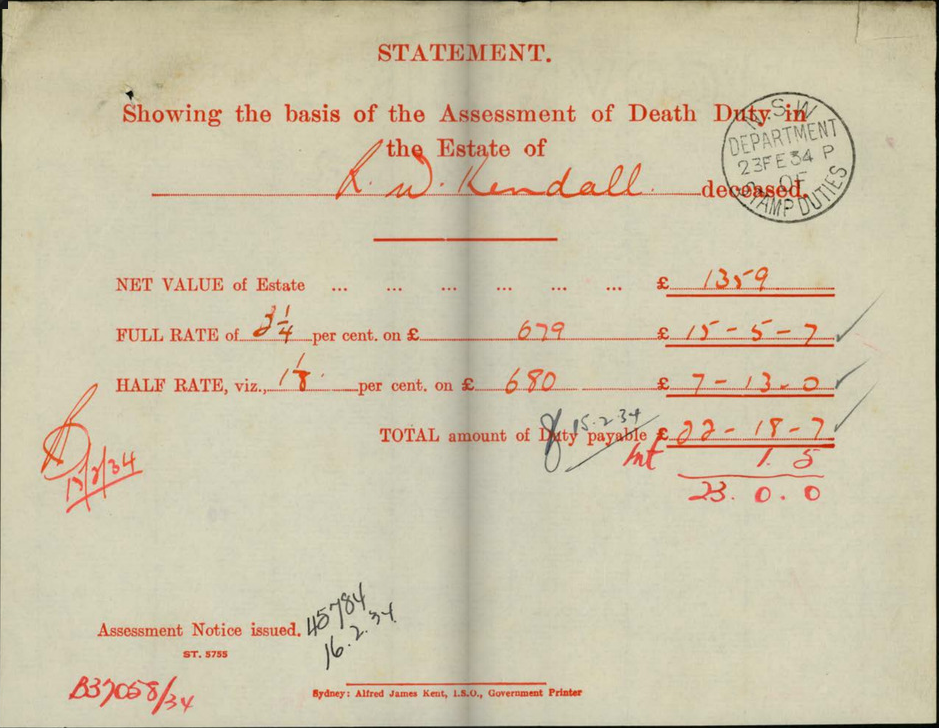 STATEMENT.
Showing the basis of the Assessment of Death Duty in
the Estate of
R. W. Kendall. deceased.
N.S.W
DEPARTMENT
23FE34 P
OF
STAMP DUTIES
NET VALUE of Estate ... ... ... ... ... ... £ 1359
FULL RATE of 2 1/4 per cent. on £ 679 £ 15-5-7
HALF RATE, viz., 1 1/8 per cent. on £ 680 £ 7-13-0
15.2.34
TOTAL amount of Duty payable £ 22-18-7
Int 1. 5
23. 0. 0
/2/34
Assessment Notice issued. 45784
16.2.34
ST. 5755
B37058/34
Sydney: Alfred James Kent, I.S.O., Government Printer